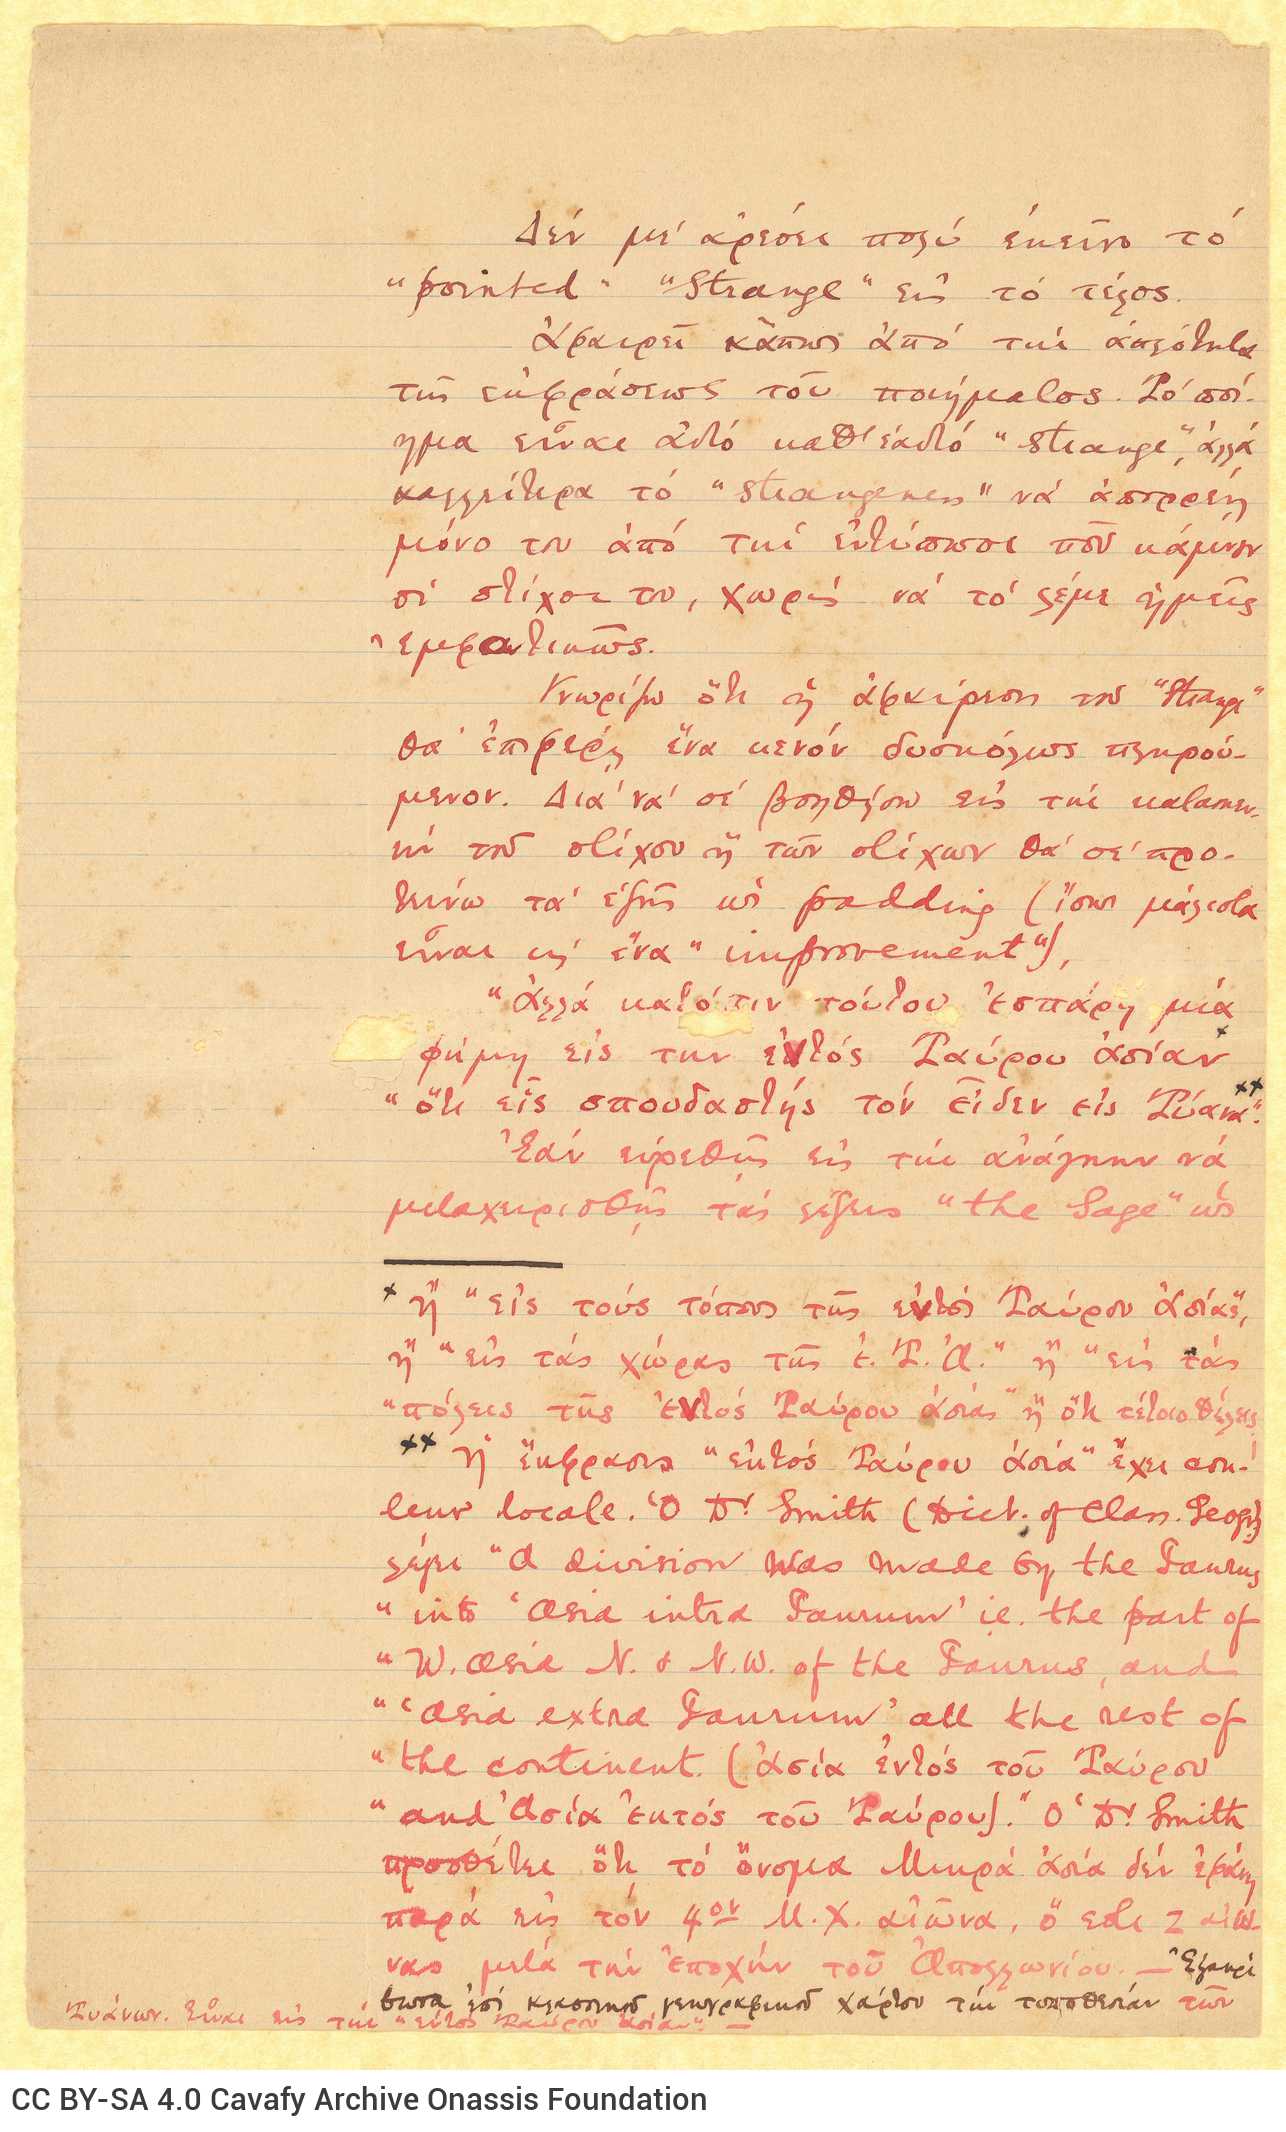 Δέν μέ ἀρέσει πολύ ἐκεῖνο τό
"pointed" "strange" εἰς τό τέλος.
Ἀφαιρεῖ κἄπως ἀπό τήν ἁπλότητα
τῆς ἐκφράσεως τοῦ ποιήματος. Τό ποί-
ημα εἶναι αὐτό καθ' ἑαυτό "strange", ἀλλά
καλλείτερα τό "strangeness" νά ἀπορρέῃ
μόνο του ἀπό τήν ἐντύπωσι ποῦ κάμνουν
οἱ στίχοι του, χωρίς νά τό λέμε ἡμεῖς
ἐμφαντικῶς.
Γνωρίζω ὅτι ἡ ἀφαίρεσις τοῦ "Strange"
θά ἐπιφέρῃ ἕνα κενόν δυσκόλως πληρού-
μενον. Διά νά σέ βοηθήσω εἰς τήν κατασκευ-
ήν τοῦ στίχου ἤ τῶν στίχων θά σέ προ-
τείνω τά ἑξῆς ὡς padding (ἴσως μάλιστα
εἶναι κι' ἕνα "improvement"),
"Ἀλλά κατόπιν τούτου ἐσπάρη μία
φήμη εἰς την ἐντός Ταύρου Ἀσίαν ×
"ὅτι εἷς σπουδαστής τόν εἶδεν εἰς Τύανα". ××
Ἐάν εὑρεθῇς εἰς τήν ἀνάγκην νά
μεταχειρισθῇς τάς λέξεις "the Sage" ὡς
× ἤ "εἰς τούς τόπους τῆς ἐντός Ταύρου Ἀσίας",
ἤ "εἰς τάς χώρας τῆς ἐ. Τ. Ἀ." ἤ "εἰς τάς
"πόλεις τῆς ἐντός Ταύρου Ἀσίας" ἤ ὅτι τέτοιο θέλεις!
×× Ἡ ἔκφρασις "ἐντός Ταύρου Ἀσία" ἔχει cou-
leur locale. Ὁ Dr Smith (Dict. of Class. Geogr.)
λέγει "A division was made by the Taurus
"into 'Asia intra Taurum' i.e. the part of
"W. Asia N. & N.W. of the Taurus, and
"'Asia extra Taurum' all the rest of
"the continent. (Ἀσία ἐντός τοῦ Ταύρου
"and Ἀσία ἐκτός τοῦ Ταύρου)." Ὁ Dr Smith
προσθέτει ὅτι τό ὄνομα Μικρά Ἀσία δέν ἐφάνη
παρά εἰς τόν 4ον Μ.Χ. αἰῶνα, ὅ ἐστι 2 αἰῶ-
νας μετά τήν ἐποχήν τοῦ Ἀπολλωνίου. — Ἐξηκρί
βωσα ἐπί κλασσικοῦ γεωγραφικοῦ χάρτου τήν τοποθεσίαν τῶν
Τυάνων. Εἶναι εἰς τήν "ἐντός Ταύρου Ἀσίαν". —
CC BY-SA 4.0 Cavafy Archive Onassis Foundation